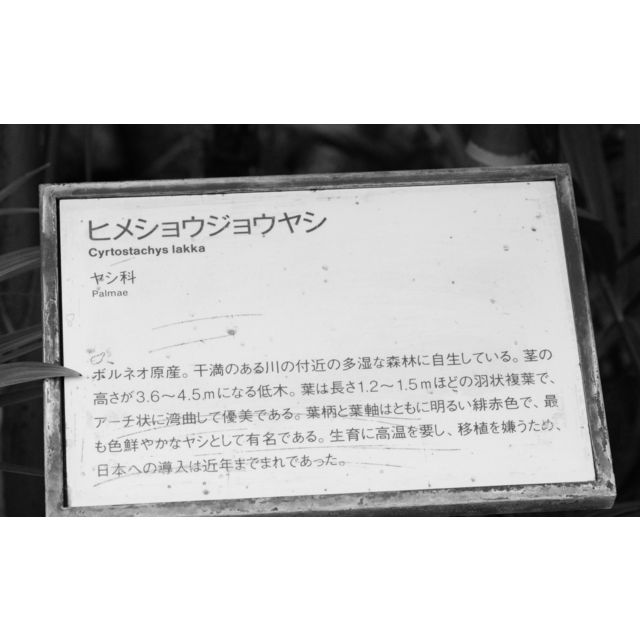 ヒメショウジョウヤシ
Cyrtostachys lakka
ヤシ科
Palmae
ボルネオ原産。干満のある川の付近の多湿な森林に自生している。茎の
高さが3.6〜4.5mになる低木。葉は長さ1.2〜1.5mほどの羽状複葉で、
アーチ状に湾曲して優美である。葉柄と葉軸はともに明るい緋赤色で、最
も色鮮やかなヤシとして有名である。生育に高温を要し、移植を嫌うため、
日本への導入は近年までまれであった。